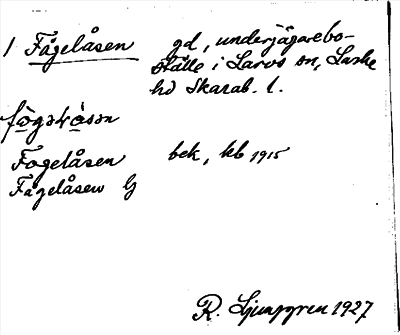 1 Fågelåsen gd, underjägarebo-
ställe i Larvs sn, Laske
hd Skarab. l.
fo̲gəlo̲sən
Fogelåsen bek, kb 1915
Fågelåsen G
R. Ljunggren 1927